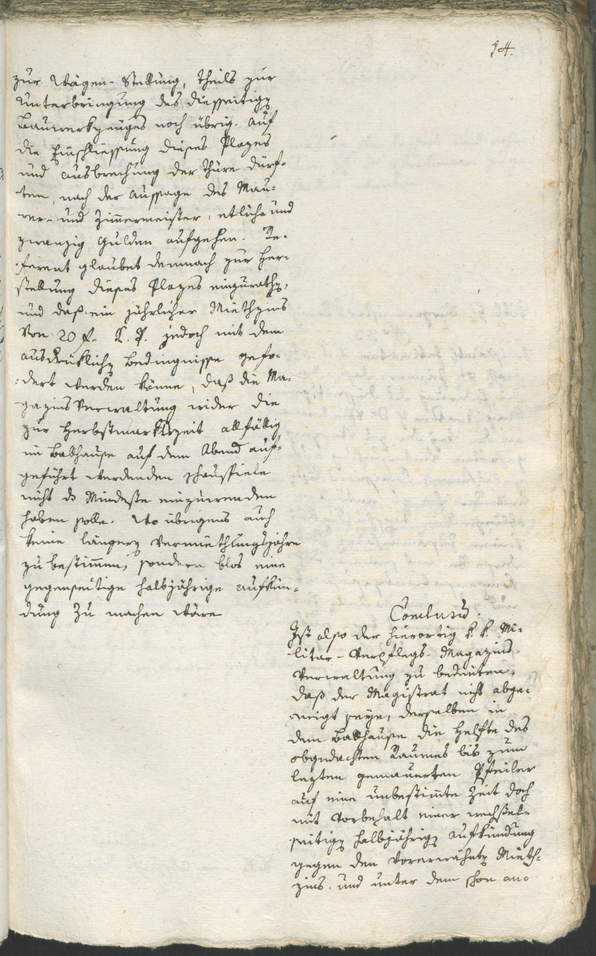 54.
zur Wägen-Stellung, theils zur
Unterbringung des diesseitigen
Bauwerkzeuges noch übrig. Auf
die Einschliessung dieses Plazes
und Ausbrechung der Thüre dürf-
ten, nach der Aussage des Mau-
rer- und Zimmermeister, etliche und
zwanzig Gulden aufgehen. Re-
ferent glaubet demnach zur Her-
stellung dieses Plazes einzurathen,
und daß ein jährlicher Miethzins
von 20 f. jedoch mit dem
ausdrüklichen Bedingnisse gefo-
dert werden könne, daß die Ma-
gazins Verwaltung wider die
zur Herbstmarktszeit allfällig
im Balhause auf dem Abend auf-
geführt werdenden Schauspiele
nicht das Mindeste einzuwenden
haben solle. Wo übrigens auch
keine längern Vermiethungsjahre
zu bestimmen, sondern blos eine
gegenseitige halbjährige Aufkün-
dung zu machen wäre
Conclusum.
Ist also der hierortig k. k. Mi-
litar-Verpflegs-Magazins-
Verwaltung zu bedeuten,
daß der Magistrat nicht abge-
neigt seye, derselben in
dem Balhause die Helfte des
obgedachten Raumes bis zum
lezten gemauerten Pfeiler
auf eine unbestimmte Zeit doch
mit Vorbehalt einer wechsel-
seitigen halbjährigen Aufkündung
gegen den vorerwähnten Mieth-
zins und unter dem schon an-